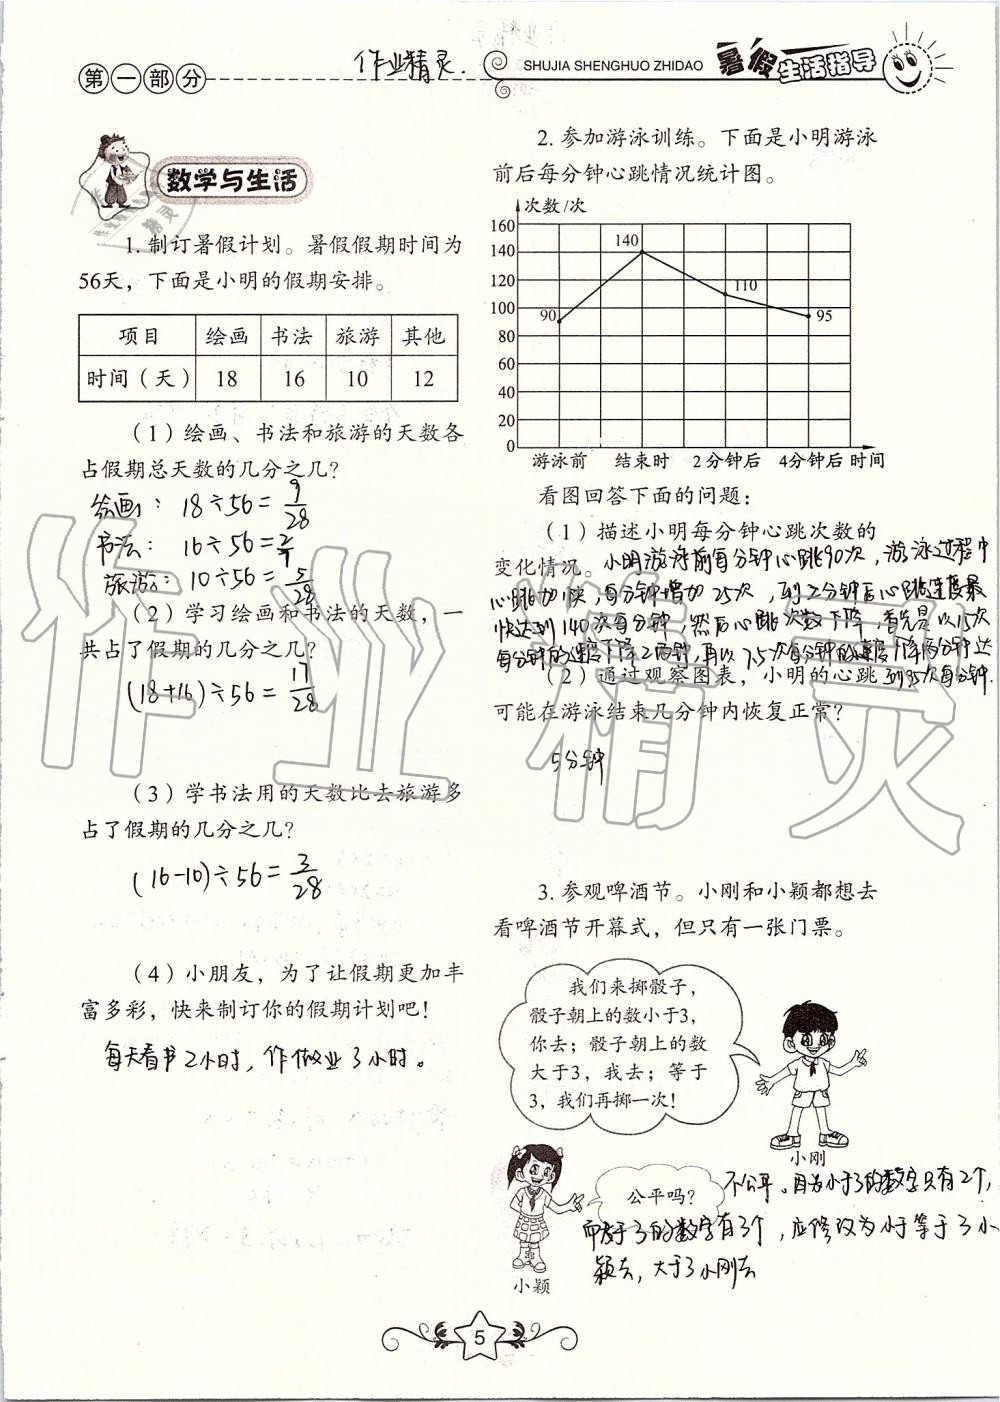 第一部分
作业精灵.
SHUJIA SHENGHUO ZHIDAO
暑假生活指导
数学与生活
1. 制订暑假计划。暑假假期时间为
56天，下面是小明的假期安排。
项目 绘画 书法 旅游 其他
时间（天） 18 16 10 12
（1）绘画、书法和旅游的天数各
占假期总天数的几分之几？
绘画：18÷56=9/28
书法：16÷56=2/7
旅游：10÷56=5/28
（2）学习绘画和书法的天数，一
共占了假期的几分之几？
(18+16)÷56=17/28
（3）学书法用的天数比去旅游多
占了假期的几分之几？
(16-10)÷56=3/28
（4）小朋友，为了让假期更加丰
富多彩，快来制订你的假期计划吧！
每天看书2小时，作做业3小时。
2. 参加游泳训练。下面是小明游泳
前后每分钟心跳情况统计图。
次数/次
160
140
120
100
80
60
40
20
0
90
140
110
95
游泳前 结束时 2分钟后 4分钟后 时间
看图回答下面的问题：
（1）描述小明每分钟心跳次数的
变化情况。小明游泳前每分钟心跳90次，游泳过程中
心跳加快，每分钟增加25次，到2分钟后心跳速度最
快达到140次每分钟，然后心跳次数下降，首先是以15次
每分钟的速度下降2两钟，再以7.5次每分钟的速度下降两分钟达
到95次每分钟.
（2）通过观察图表，小明的心跳
可能在游泳结束几分钟内恢复正常？
5分钟
3. 参观啤酒节。小刚和小颖都想去
看啤酒节开幕式，但只有一张门票。
我们来掷骰子，
骰子朝上的数小于3，
你去；骰子朝上的数
大于3，我去；等于
3，我们再掷一次！
小刚
公平吗？
小颖
不公平。因为小于3的数字只有2个，
而大于3的数字有3个，应修改为小于等于3小
颖去，大于3小刚去
5
作业精灵